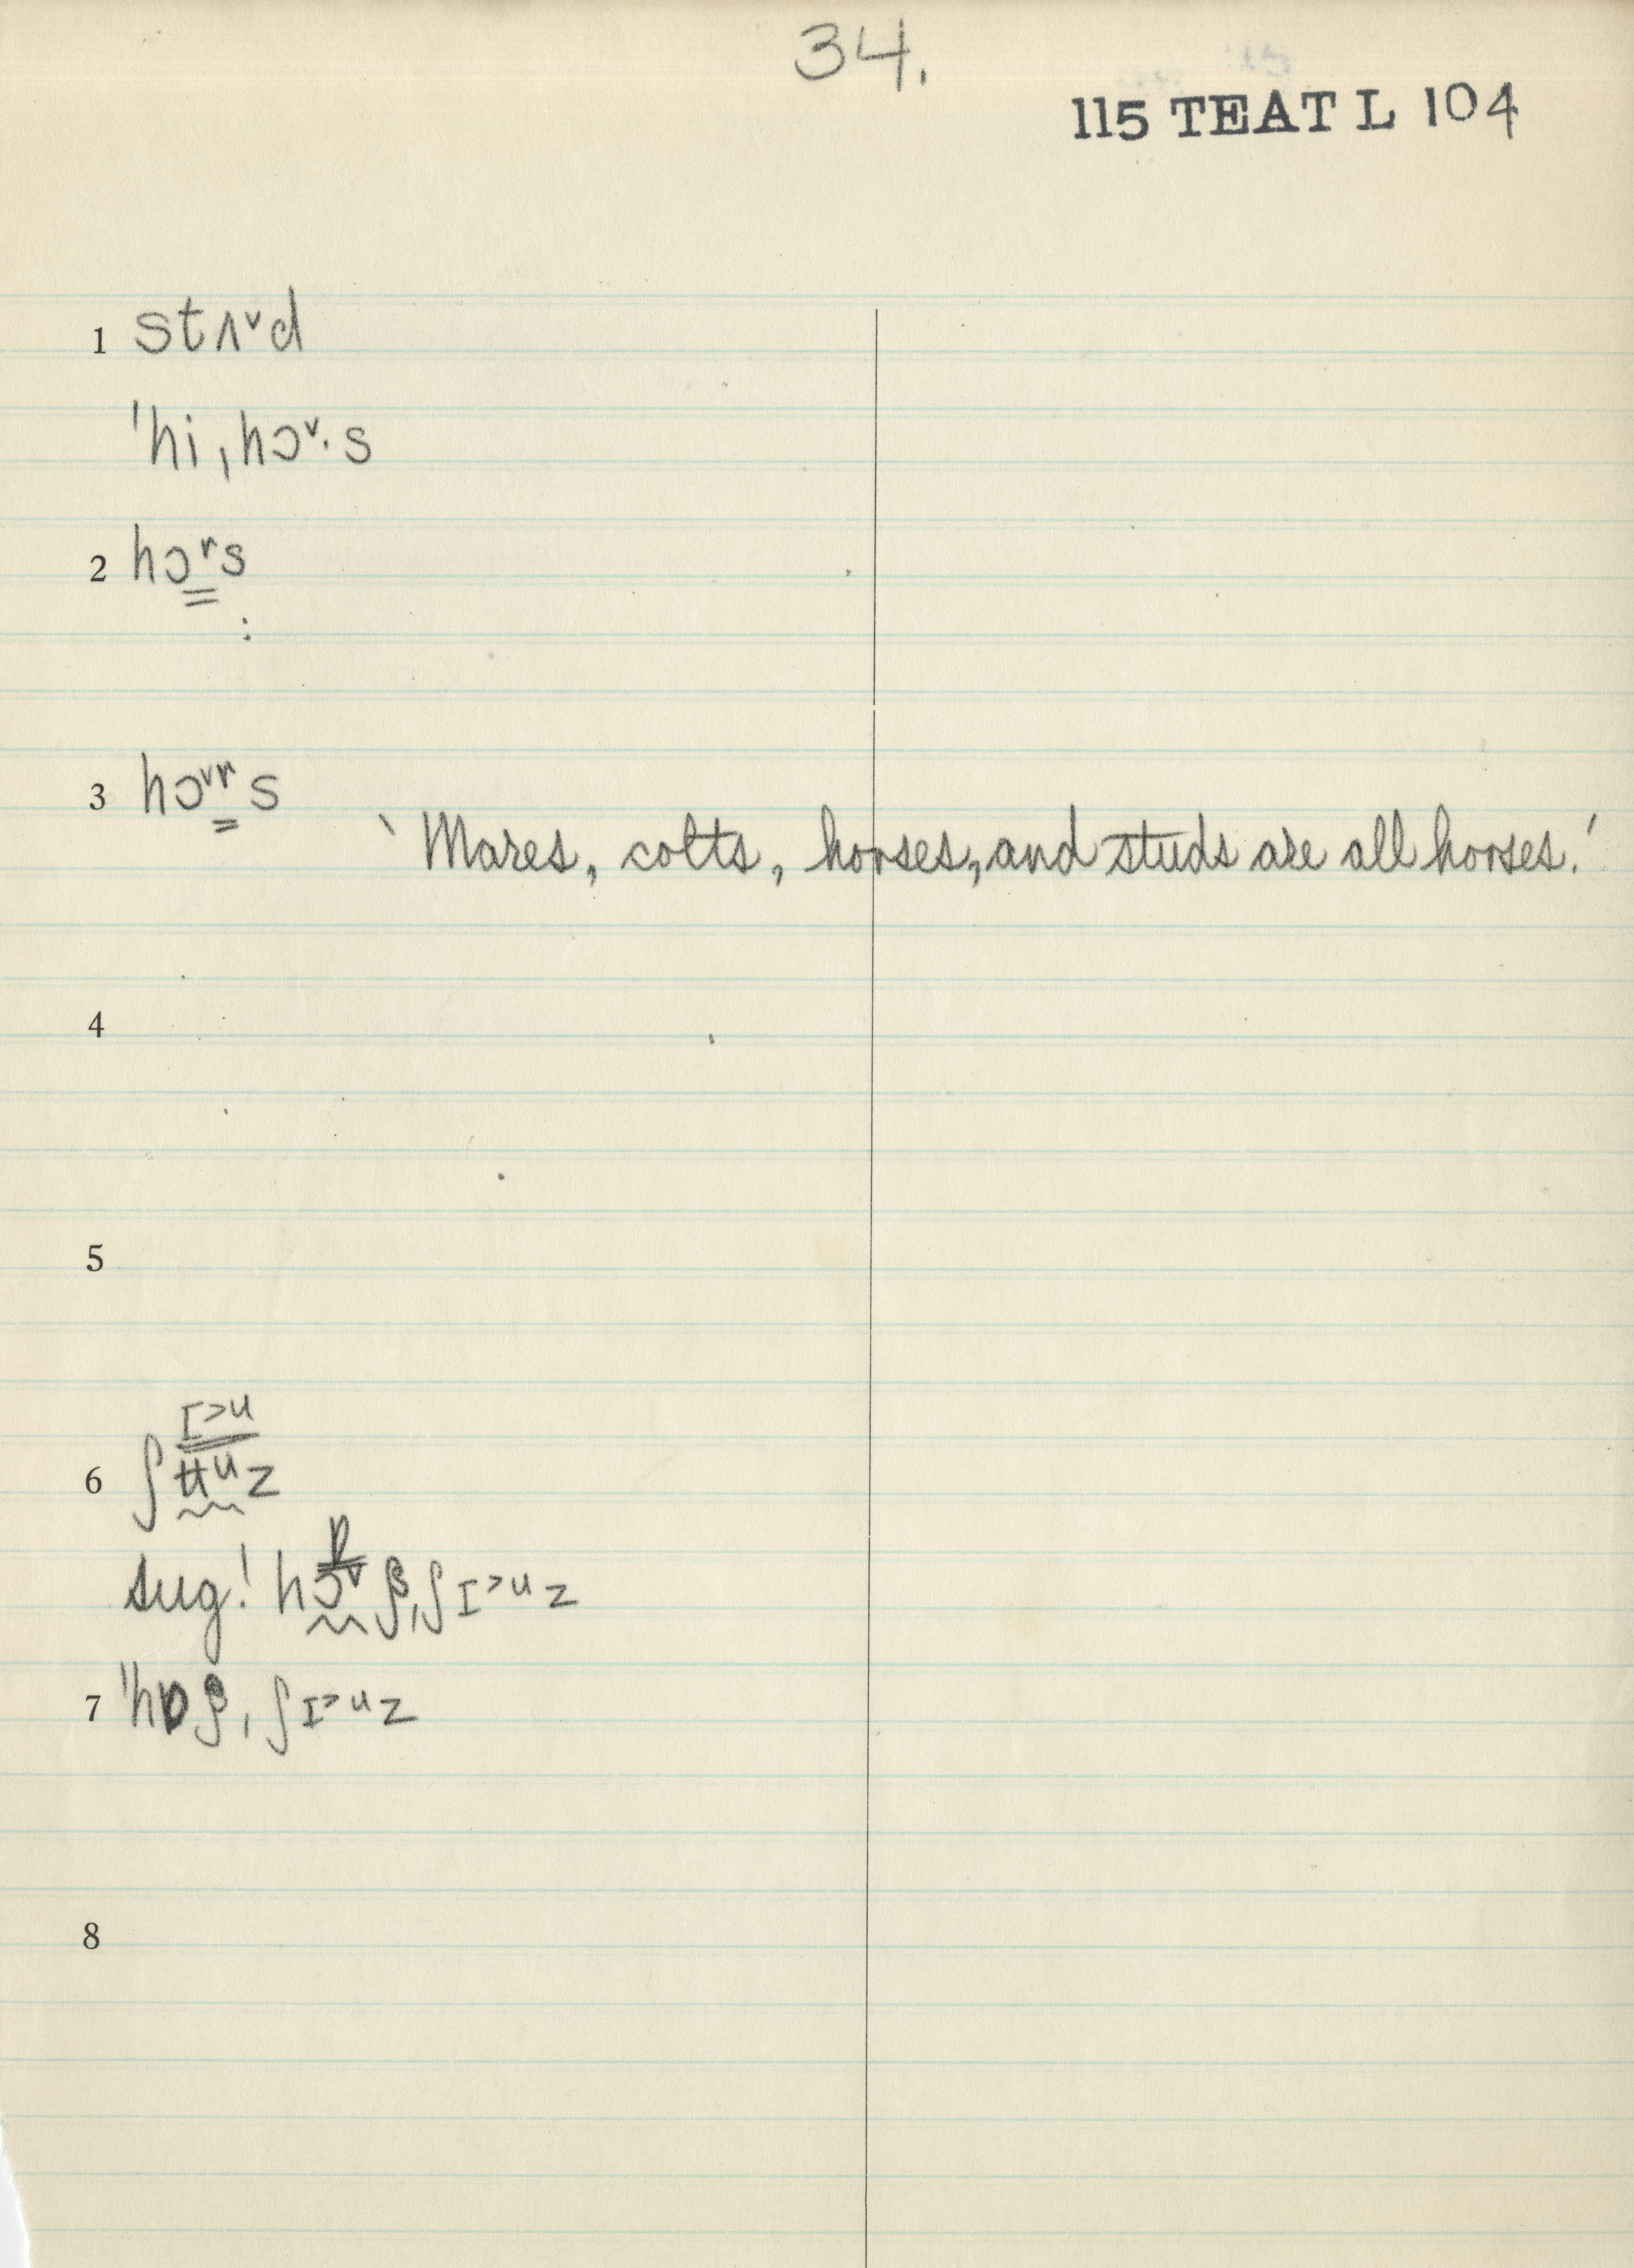 34.
115 TEAT L 104
1 stʌᵛd
'hi,hɔᵛ·s
2 hɔʳs
:
3 hɔᵛʳs
‵Mares, colts, horses, and studs are all horses.′
4
5
I>u
6 ʃʉᵘz
ɒ
sug! hɔᵛʂ,ʃI>ᵘz
7 'hɒʂ,ʃI>ᵘz
8